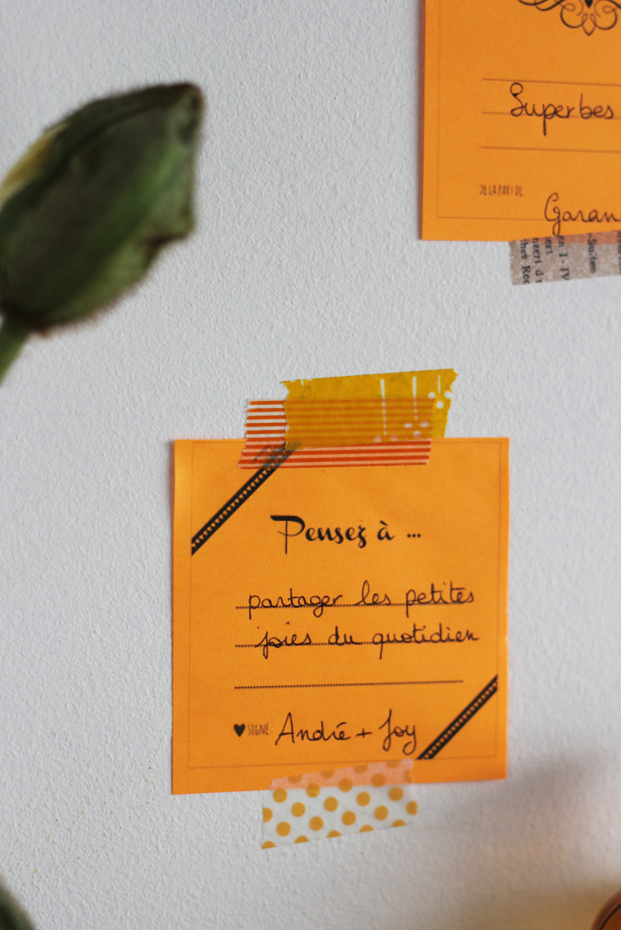 Superbes
DE LA PART DE
Pensez à ...
partager les petites
joies du quotidien
SIGNÉ
André + Joy